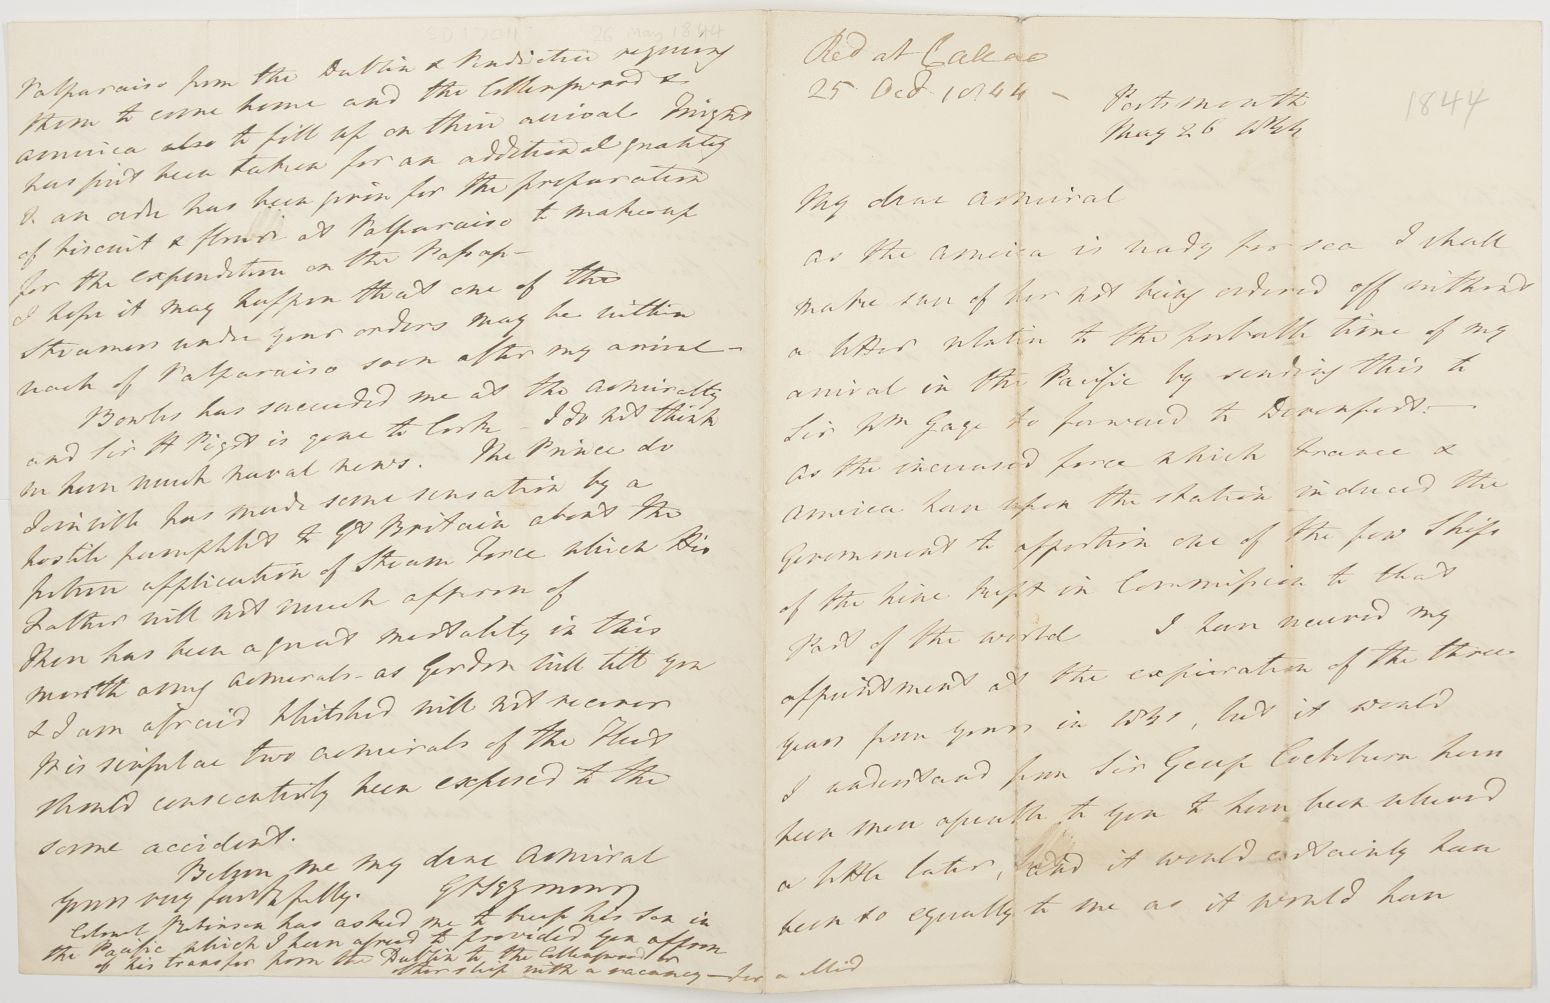 Recd at Callao
25 Oct 1844 –
1844
Portsmouth
May 26 1844
My dear Admiral
As the America is ready for sea I shall
make sure of her not being ordered off without
a letter relative to the probable time of my
arrival in the Pacific by sending this to
Sir Wm Gage to forward to Devonport. –
As the increased force which France &
America have upon the station induced the
Government to apportion one of the few Ships
of the Line kept in Commission to that
Part of the world I have received my
appointment at the expiration of the three
years from yours in 1841, but it would
I understand from Sir George Cockburn have
been more agreeable to you to have been relieved
a little later, and it would certainly have
been so equally to me as it would have
26 May 1844
Valparaiso from the Dublin & Vindictive requiring
them to come home and the Collingwood &
America also to fill up on their arrival. Freight
has just been taken for an additional quantity
& an order has been given for the preparation
of biscuit & flour at Valparaiso to make up
for the expenditure on the Passage –
I hope it may happen that one of the
Steamers under your orders may be within
reach of Valparaiso soon after my arrival –
Bowles has succeeded me at the Admiralty
and Sir H Pigot is gone to Cork – I do not think
we have much naval news. The Prince de
Joinville has made some sensation by a
hostile pamphlet to Gt Britain about the
future application of Steam Force which His
Father will not much approve of
There has been a great mortality in this
month among Admirals – as Gordon will tell you
& I am afraid Whitshed will not recover
It is singular two Admirals of the Fleet
should consecutively been exposed to the
same accident.
Believe me my dear Admiral
yours very faithfully. G F Seymour
Colonel Robinson has asked me to keep his Son in
the Pacific which I have agreed to provided you approve
of his transfer from the Dublin to the Collingwood or
other ship with a vacancy – for a Mid